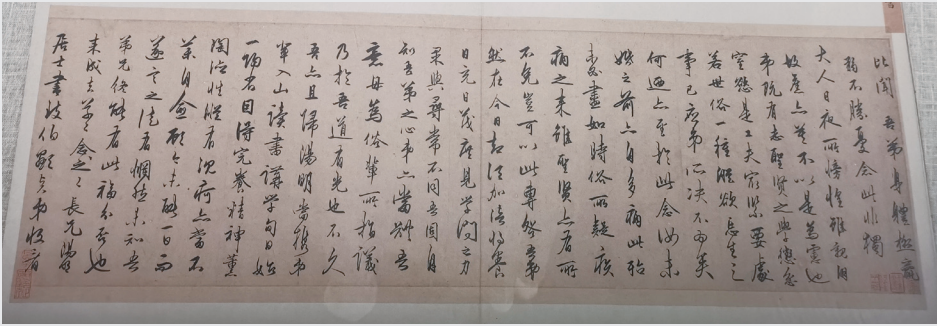 比聞吾弟身體極羸
弱不勝憂念此非獨
大人日夜所惶惶雖親朋
故舊亦莫不以是為慮也
弟既有志聖賢之學懲忿
窒慾是工夫最緊要處
若世俗一種縱慾忘生之
事已應弟所決不為矣
何迺亦至於此念汝未
婚之前亦自多病此殆
未必盡如時俗所疑疾
病之来雖聖賢亦有所
不免豈可以此專咎吾弟
然在今日却須加倍將養
日充日茂庶見學問之力
果與尋常不同吾固自
知吾弟之心弟亦當體吾
意毋為俗輩所指議
乃於吾道有光也不久
吾亦且歸陽明當携弟
輩入山讀書講學旬日始
一歸省因得完養精神薰
陶德性縱有沉疴亦當不
藥自愈顧今未能一日而
遂言之徒有惘然未知吾
弟兄終能有此福分否也
来成去草草念之念之長兄陽明
居士書致伯顯貞弟收看